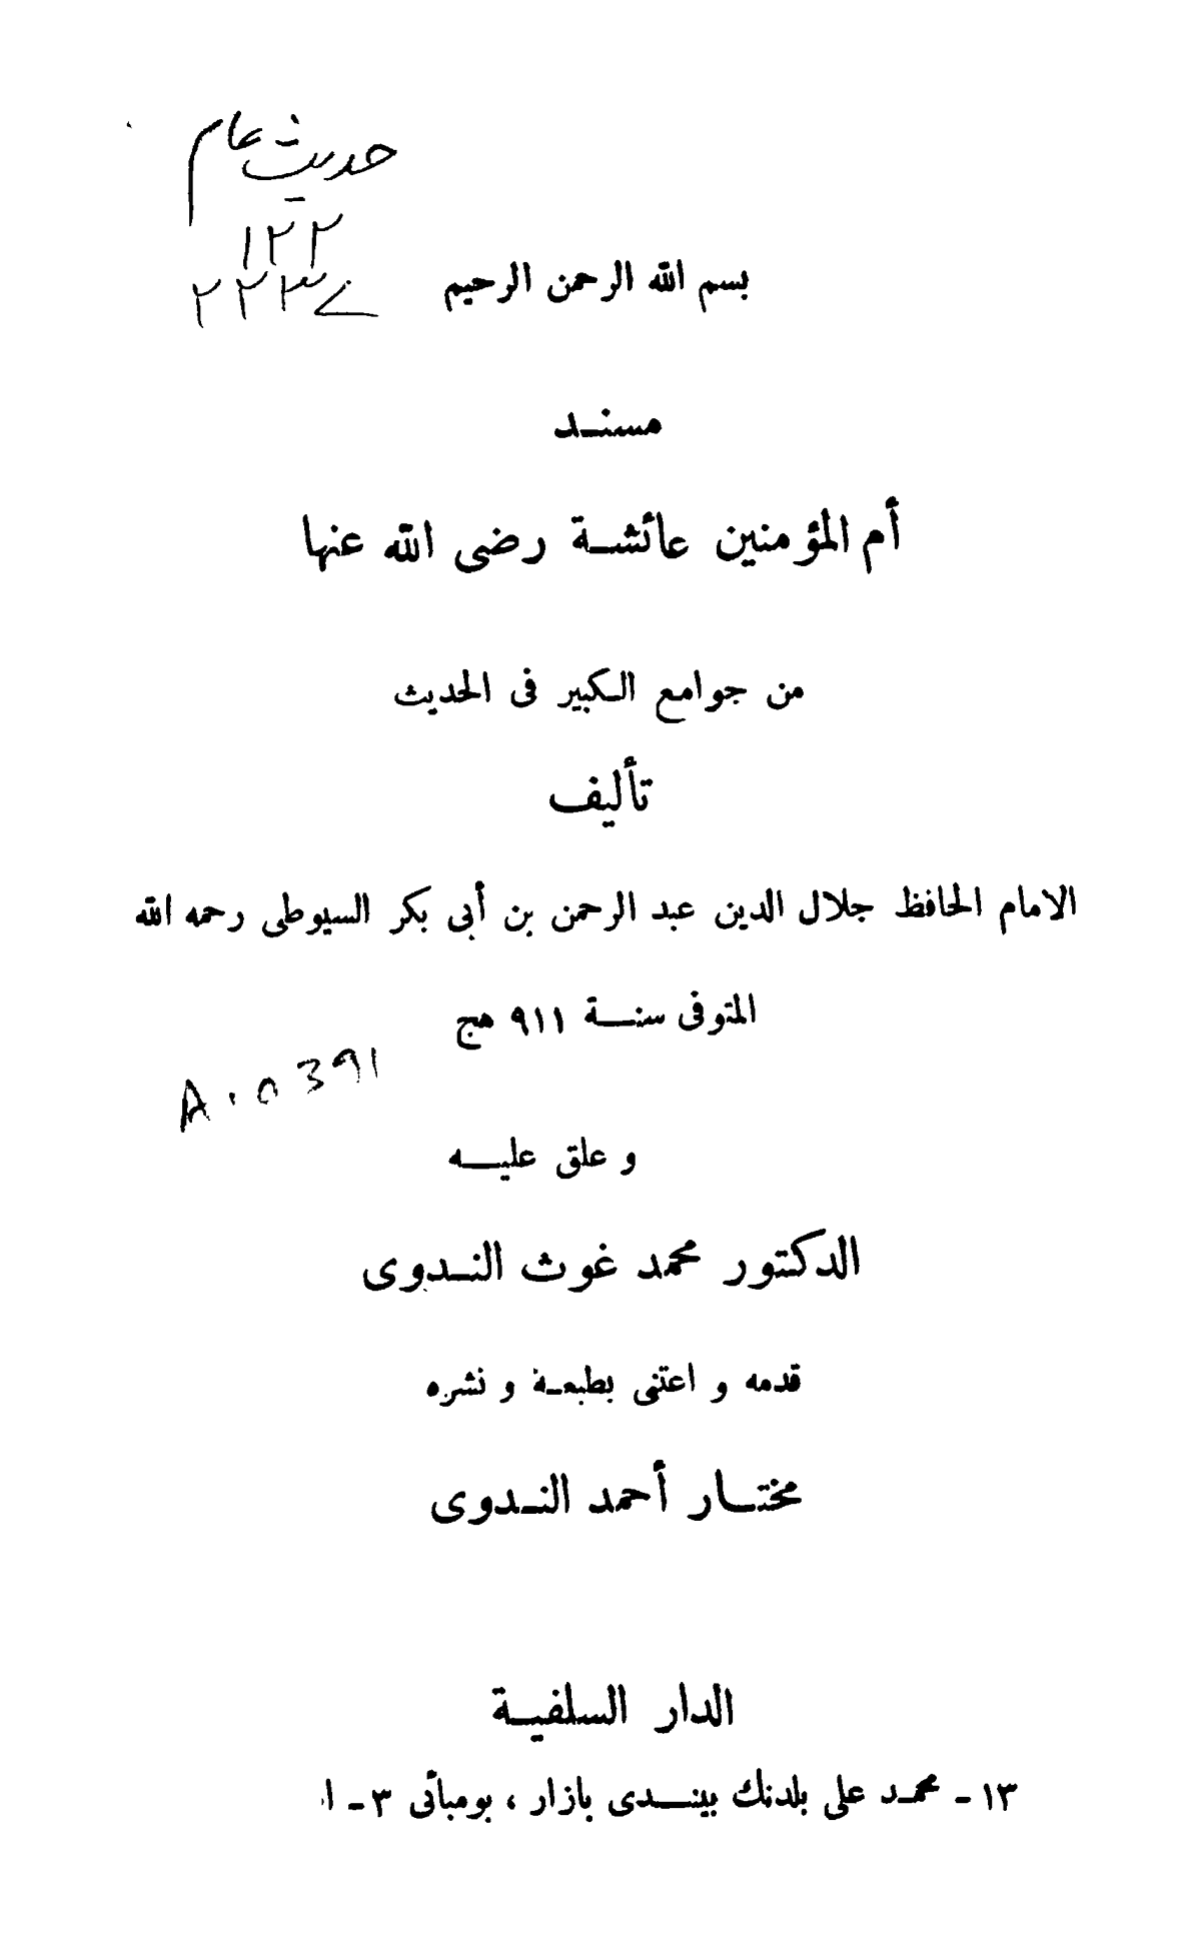 حديث عام
١٢٢
بسم الله الرحمن الرحيم
مسند
أم المؤمنين عائشة رضى الله عنها
من جوامع الكبير فى الحديث
تأليف
الامام الحافظ جلال الدين عبد الرحمن بن أبى بكر السيوطى رحمه الله
المتوفى سنة ٩١١ هج
و علق عليه
الدكتور محمد غوث الندوى
قدمه و اعتنى بطبعة و نشره
مختار أحمد الندوى
الدار السلفية
١٣ - محمد على بلدنك بيندى بازار ، بومبائى ٣ -